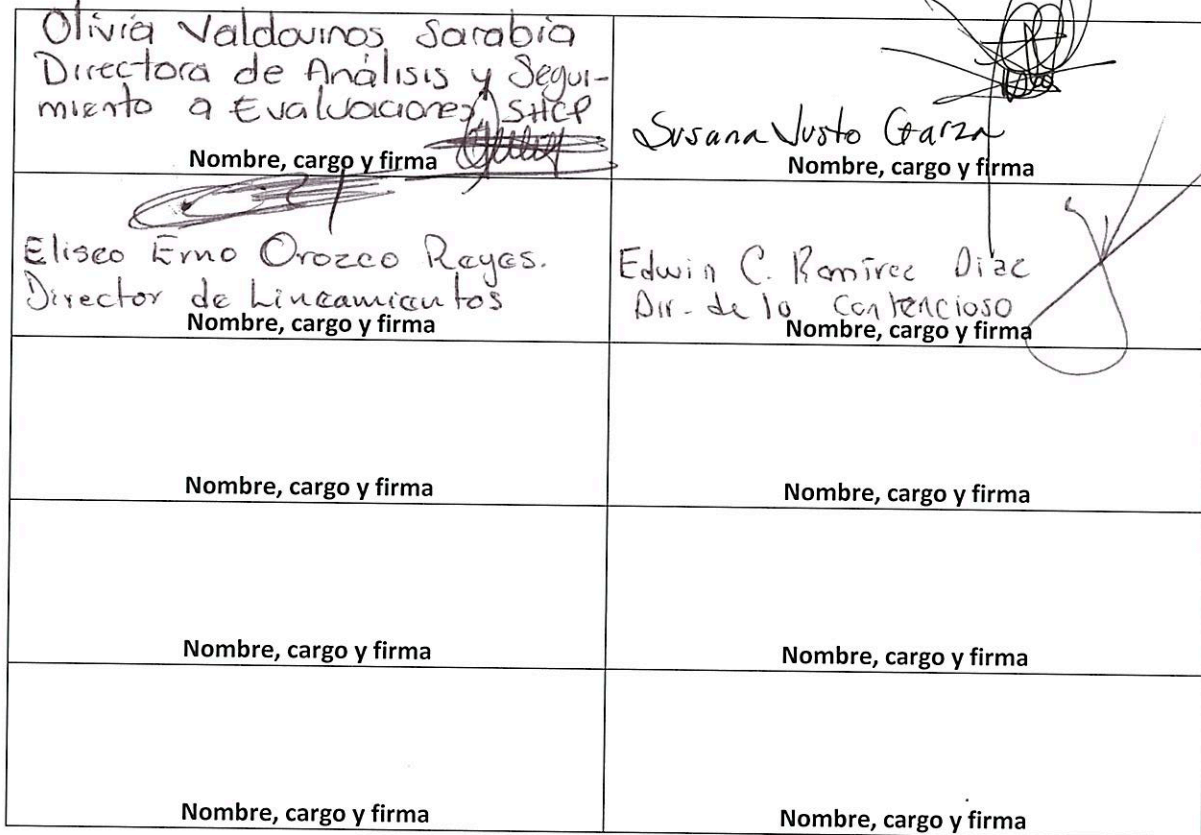 Olivia Valdovinos Sarabia
Directora de Análisis y Segui-
miento a Evaluaciones, SHCP
Nombre, cargo y firma
Susana Justo Garza
Nombre, cargo y firma
Eliseo Erno Orozco Reyes.
Director de Lineamientos
Nombre, cargo y firma
Edwin C. Ramírez Díaz
Dir. de lo Contencioso
Nombre, cargo y firma
Nombre, cargo y firma
Nombre, cargo y firma
Nombre, cargo y firma
Nombre, cargo y firma
Nombre, cargo y firma
Nombre, cargo y firma